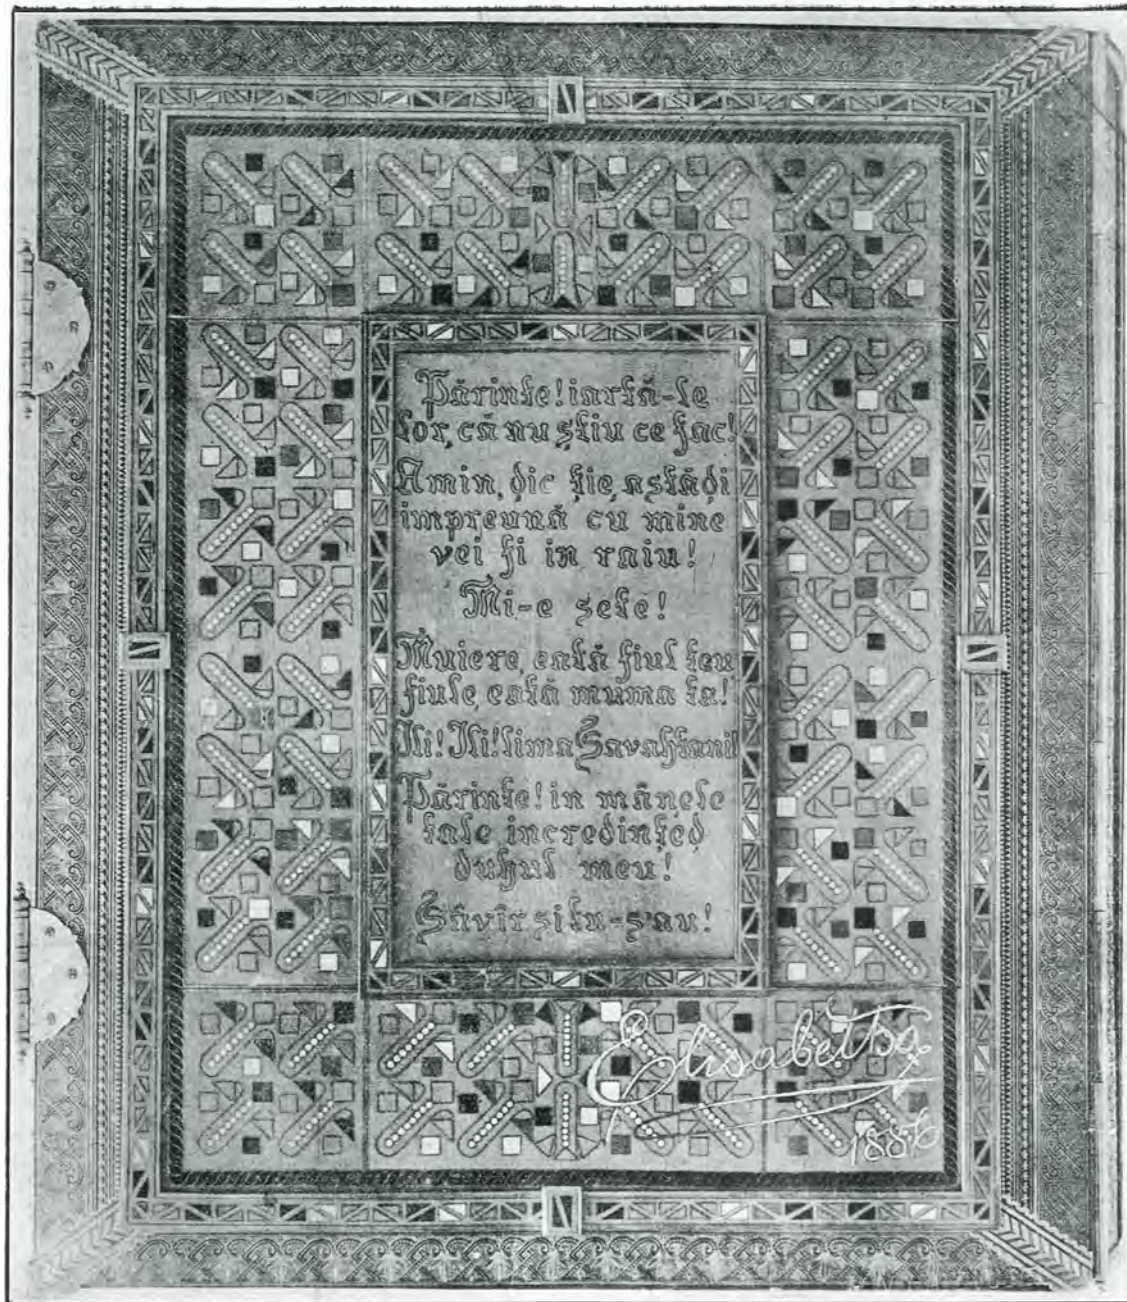 Părinte! iartă-le
lor, că nu știu ce fac!
Amin, ḑic ție, astăḑi
impreună cu mine
vei fi in raiu!
Mi-e sete!
Muiere, eată fiul teu
fiule, eată muma ta!
Ili! Ili! lima Savahtani!
Părinte! in mânele
tale incredințeḑ
duhul meu!
Săvîrșitu-s'au!
Elisabetha
1886